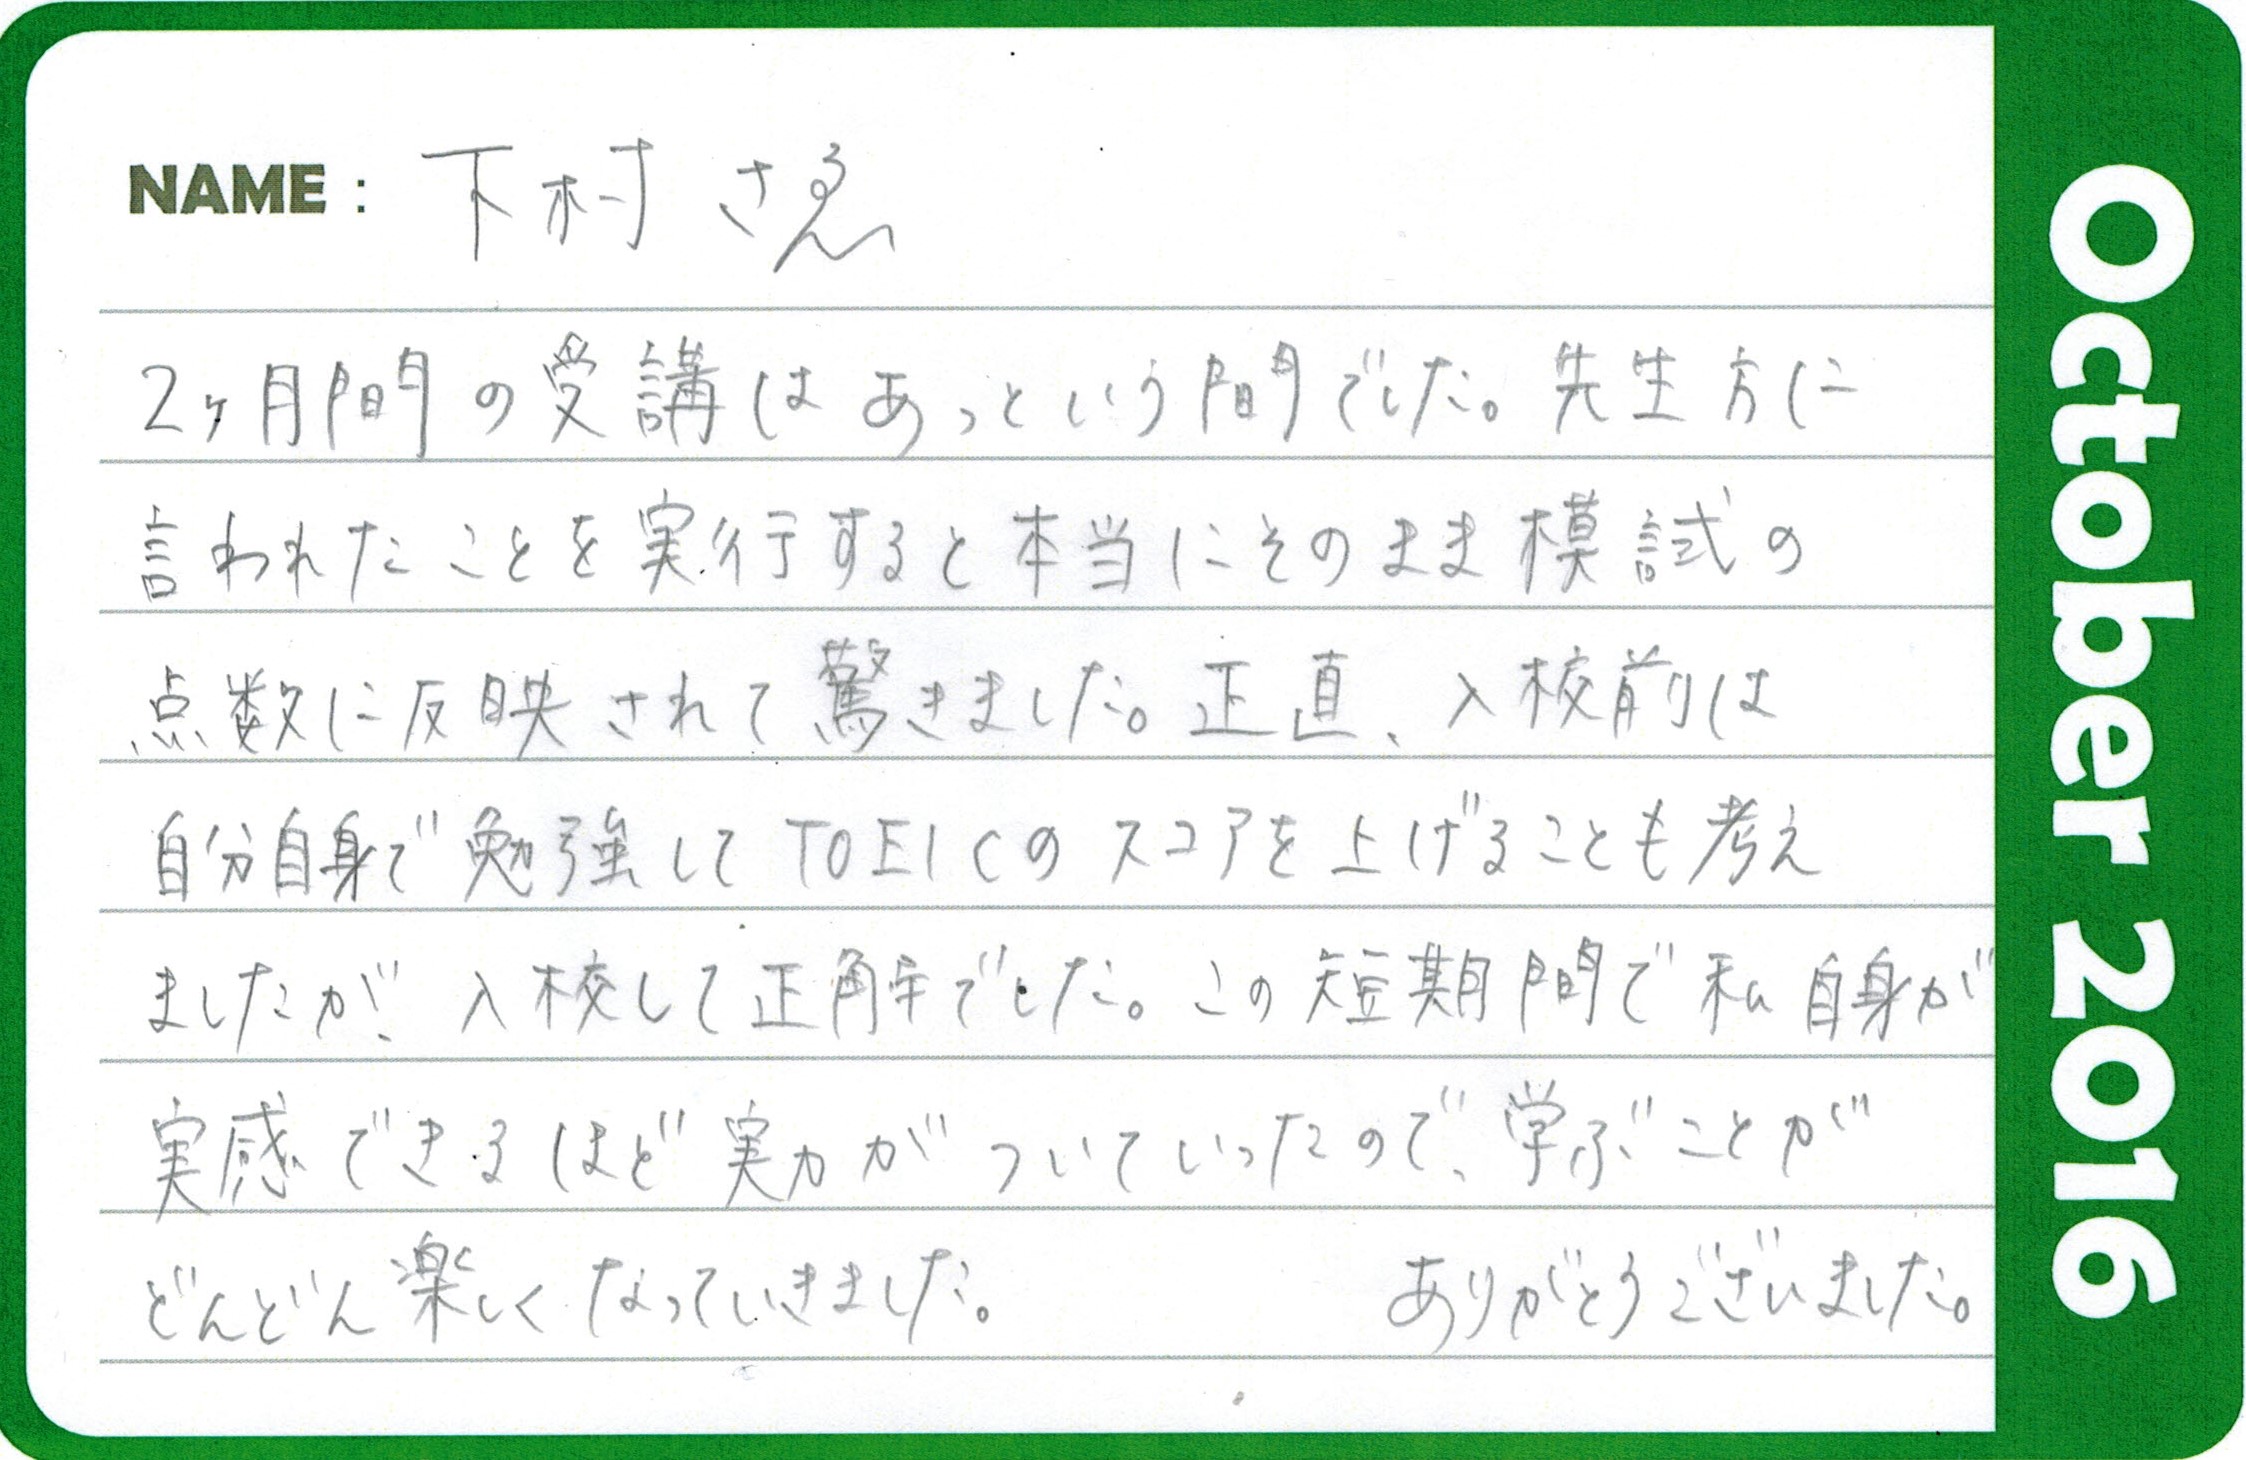 NAME : 下村 さゑ
2ヶ月間の受講はあっという間でした。先生方に
言われたことを実行すると本当にそのまま模試の
点数に反映されて驚きました。正直、入校前は
自分自身で勉強してTOEICのスコアを上げることも考え
ましたが、入校して正解でした。この短期間で私自身が
実感できるほど実力がついていったので、学ぶことが
どんどん楽しくなっていきました。 ありがとうございました。
October 2016